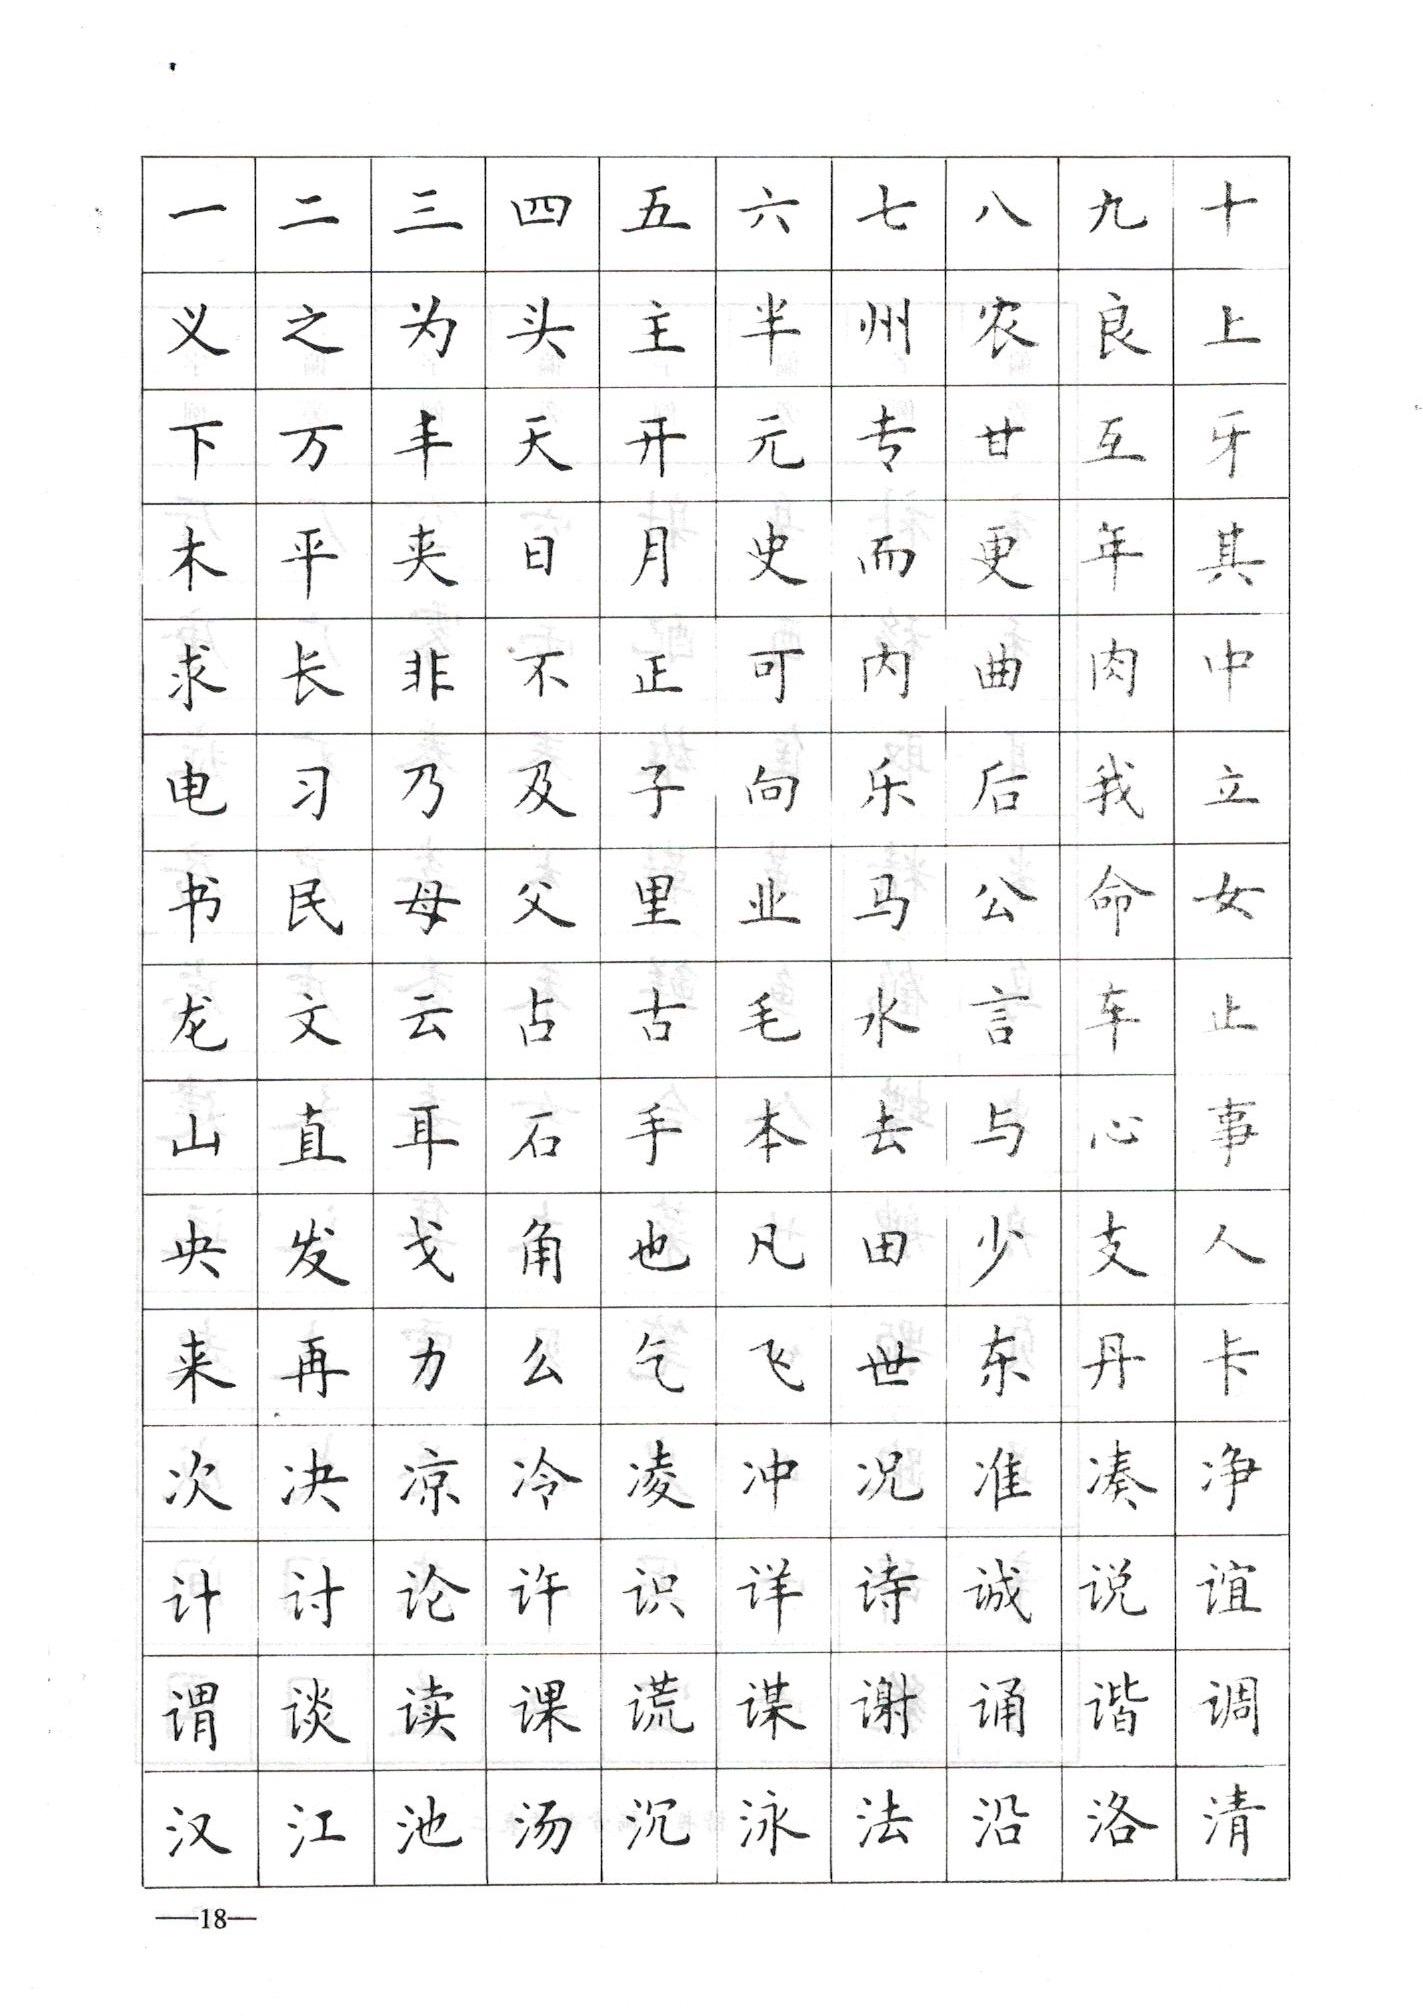 一二三四五六七八九十
义之为头主半州农良上
下万丰天开元专甘互牙
木平夹日月史而更年其
求长非不正可内曲肉中
电习乃及子向乐后我立
书民母父里业马公命女
龙文云占古毛水言车止
山直耳石手本去与心事
央发戈角也凡田少支人
来再力么乞飞世东丹卡
次决凉冷凌冲况准凑净
计讨论许识详诗诚说谊
谓谈读课谎谋谢诵谐调
汉江池汤沉泳法沿洛清
—18—